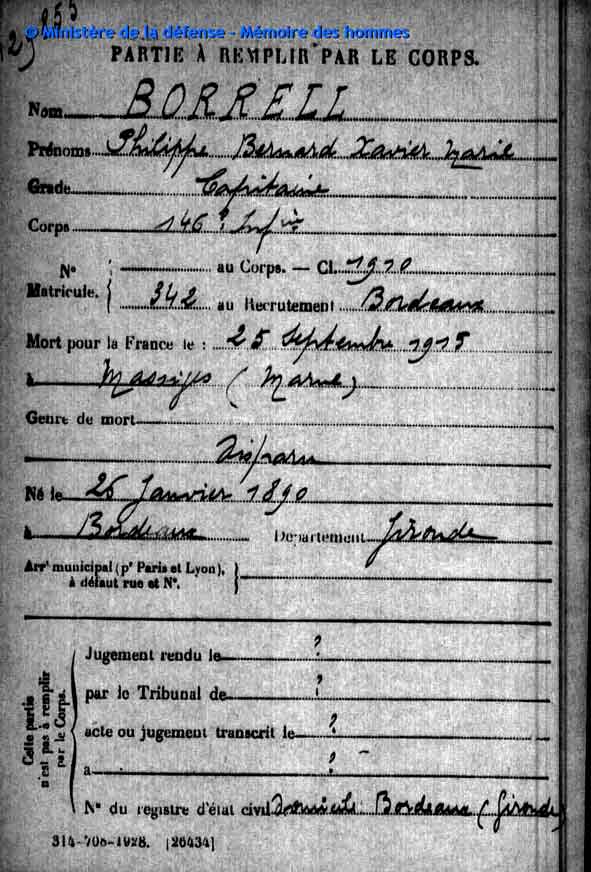 © Ministère de la défense - Mémoire des hommes
PARTIE À REMPLIR PAR LE CORPS.
Nom BORRELL
Prénoms Philippe Bernard Xavier Marie
Grade Capitaine
Corps 146e Infie
N° Matricule. { au Corps. — Cl. 1910
342 au Recrutement Bordeaux
Mort pour la France le : 25 Septembre 1915
à Massiges (Marne)
Genre de mort
Disparu
Né le 26 Janvier 1890
à Bordeaux Département Gironde
Arrt municipal (pr Paris et Lyon), à défaut rue et N°. }
Cette partie n'est pas à remplir par le Corps.
Jugement rendu le ?
par le Tribunal de ?
acte ou jugement transcrit le ?
à ?
N° du registre d'état civil Domicile Bordeaux (Gironde)
314-708-1928. [26434]